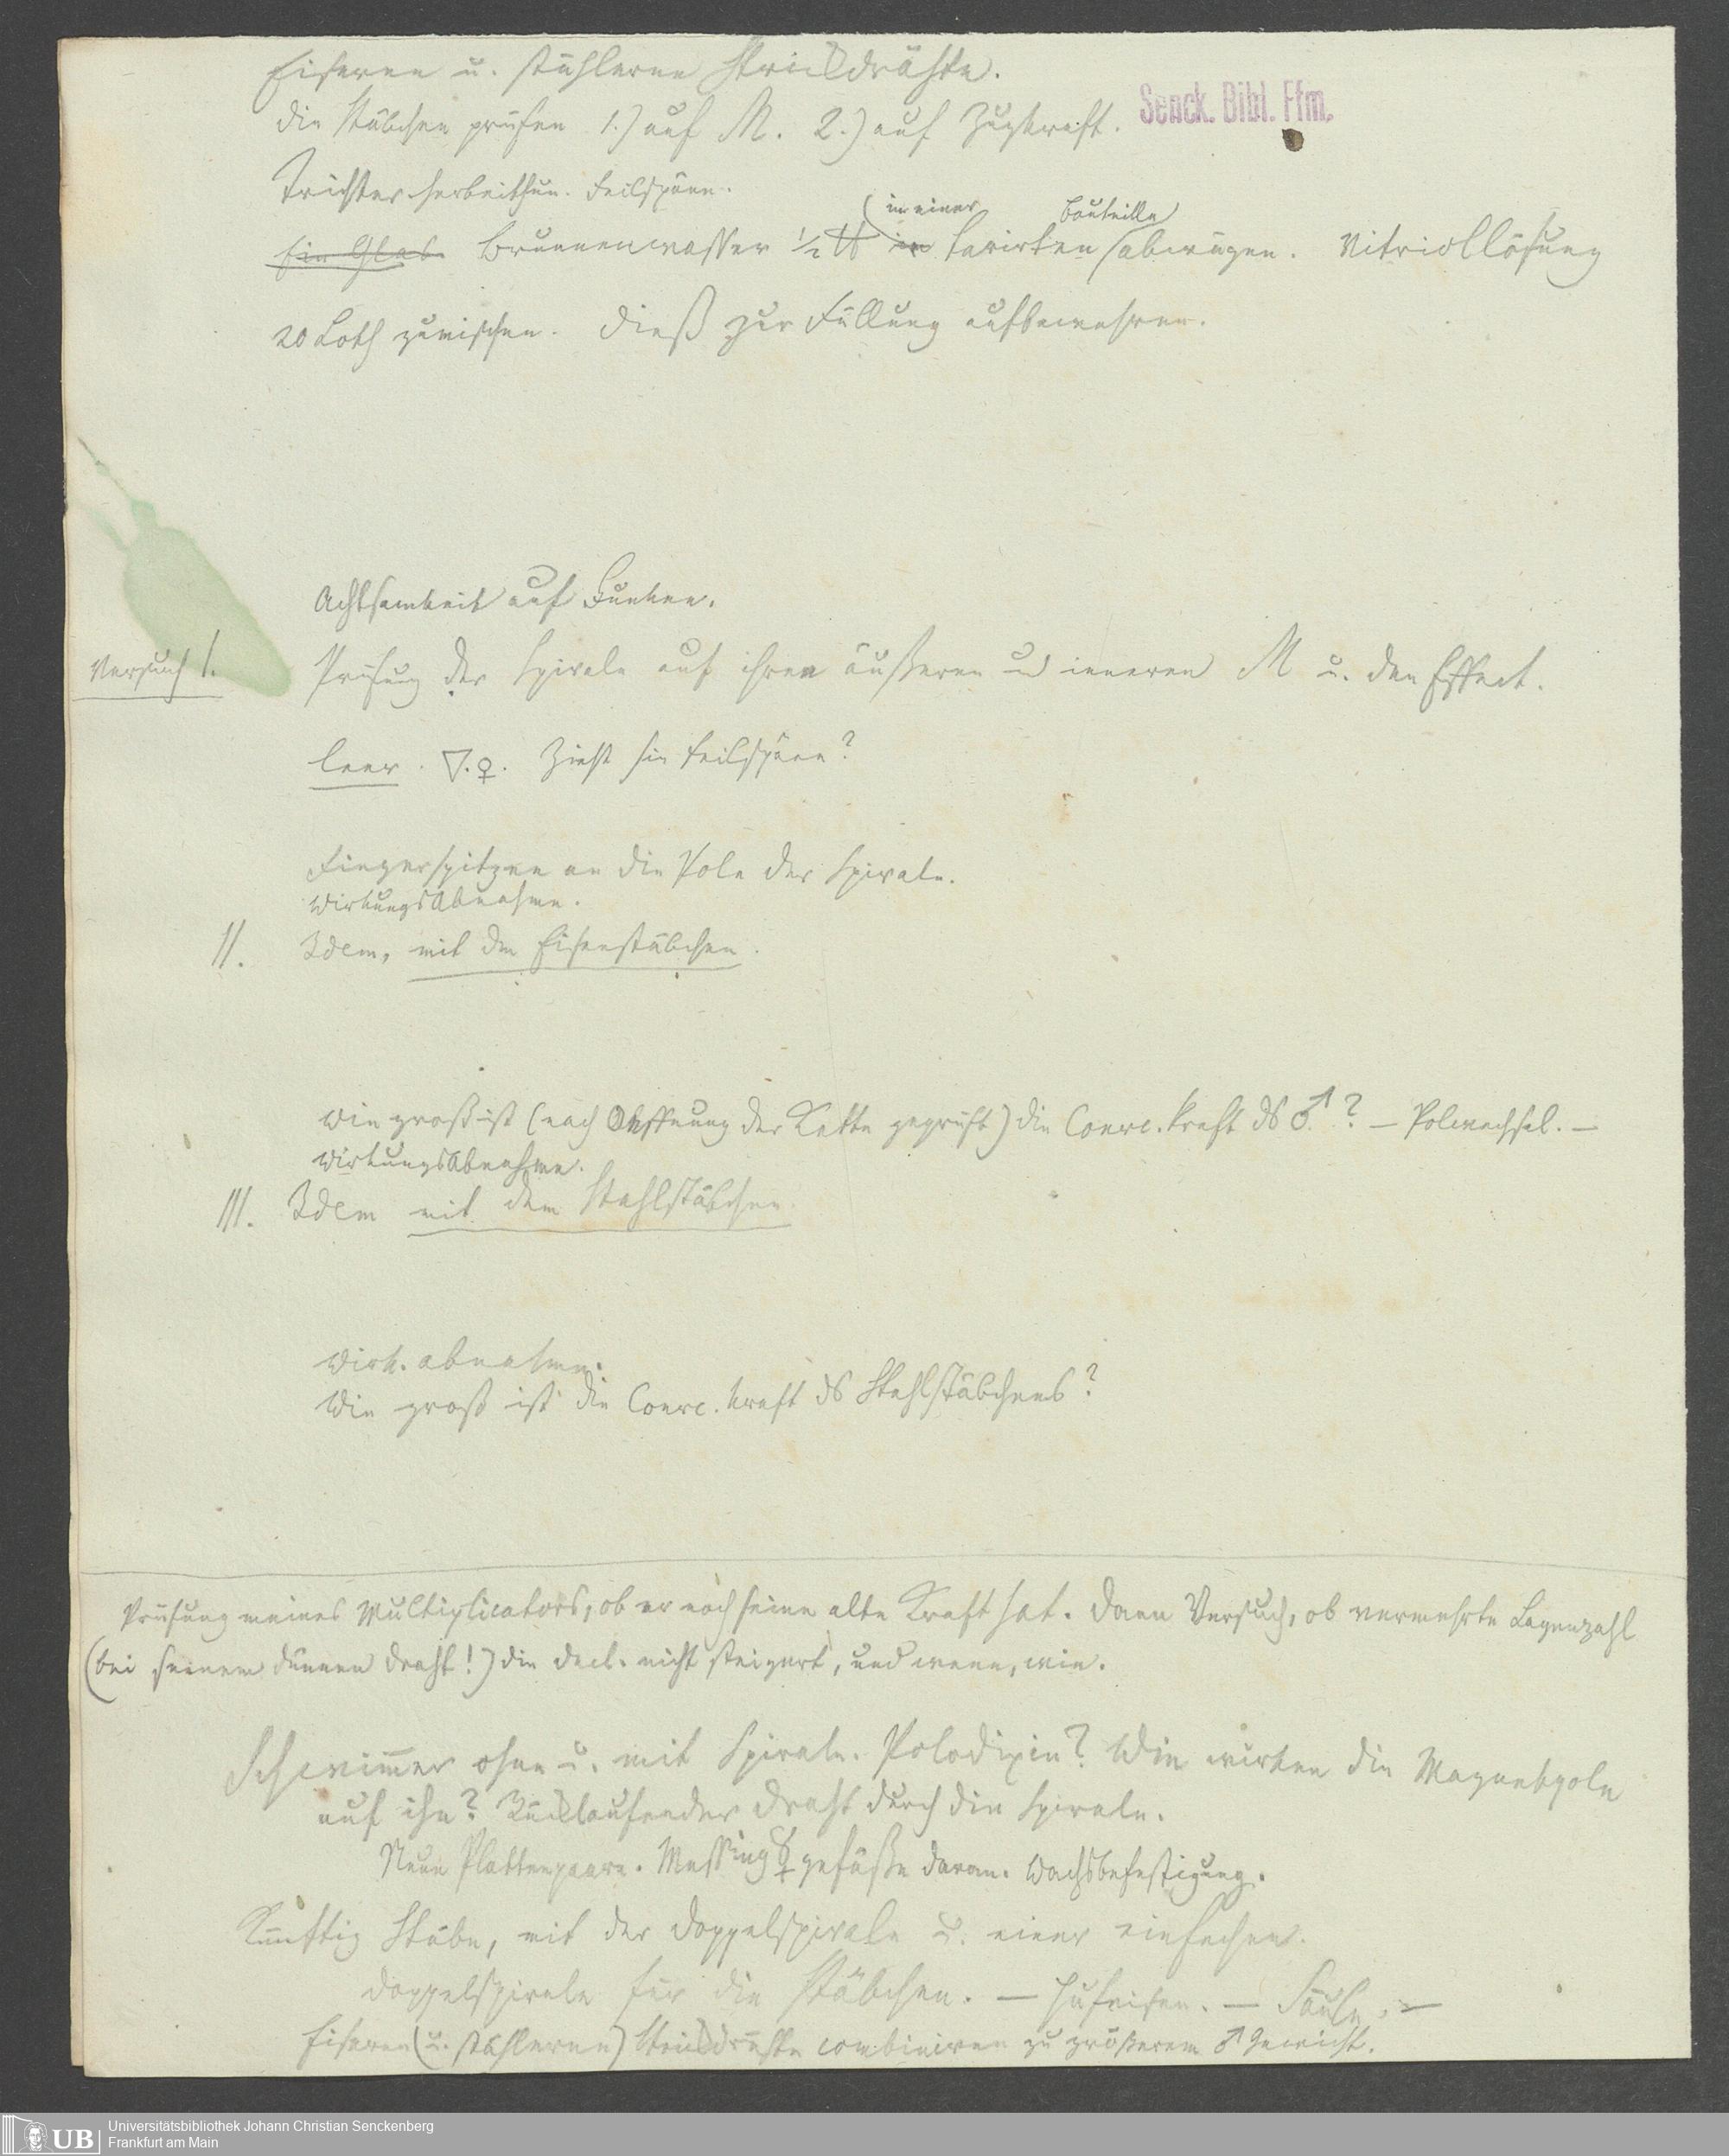 Eiserne u. stählerne Strickdrähte.
Senck. Bibl. Ffm.
die Stäbchen prüfen 1.) auf M. 2.) auf Zugkraft.
Trichter herbeithun. Feilspäne.
(in einer Bouteille)
Ein Glas. Brunnenwasser ½ ℔ in tarirten abwägen. Vitriollösung
20 Loth zumischen. Dieß zur Füllung aufbewahren.
Achtsamkeit auf Funken.
Versuch I. Prüfung der Spirale auf ihren äußeren und inneren M u. den Effect.
leer. ▽.♀. Zieht sie Feilspäne?
Fingerspitzen an die Pole der Spirale.
WirkungsAbnahme.
II. Idem, mit dem Eisenstäbchen.
Wie groß ist (nach Oeffnung der Kette geprüft) die Coerc. kraft ds ♂? – Polwechsel. –
WirkungsAbnahme.
III. Idem mit dem Stahlstäbchen.
Wirk. abnahme.
Wie groß ist die Coerc. kraft ds Stahlstäbchens?
Prüfung meines Multiplicators, ob er noch seine alte Kraft hat. Dann Versuch, ob vermehrte Lagenzahl
(bei seinem dünnen Draht!) die decl. nicht steigert, und wenn, wie.
Schwimmer ohne u. mit Spirale. Polodixie? Wie wirken die Magnetpole
auf ihn? Rücklaufender Draht durch die Spirale.
Neue Plattenpaare. Messing☿gefäße daran. Wachsbefestigung.
Künftig Stäbe, mit der Doppelspirale u. einer einfachen.
Doppelspirale für die Stäbchen. – Hufeisen. – Säule. –
Eiserne (u. stählerne) Strickdrähte combiniren zu größerem ♂Gewicht.
Universitätsbibliothek Johann Christian Senckenberg
Frankfurt am Main
UB